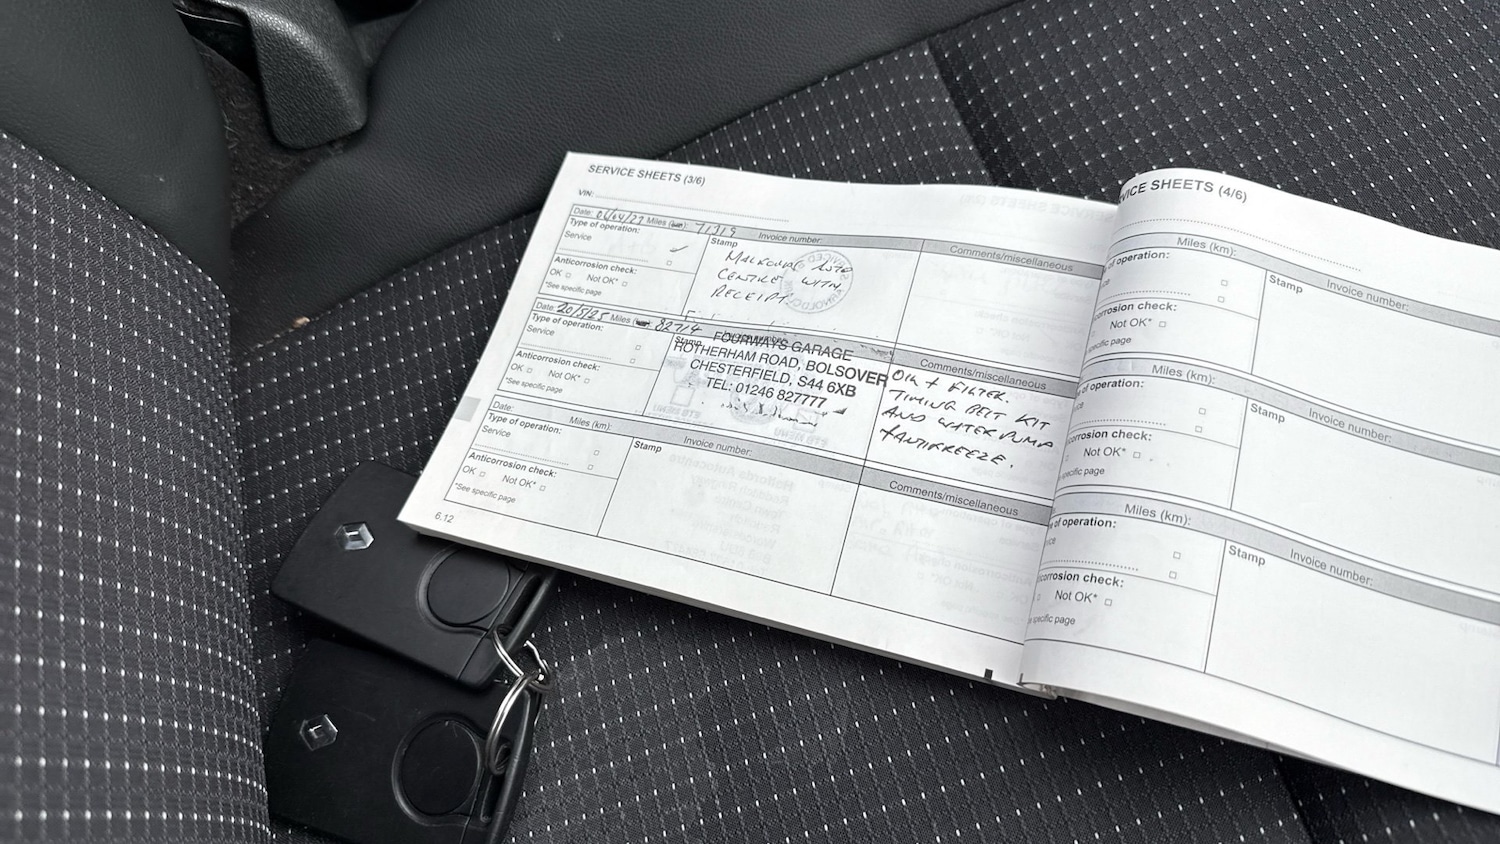 SERVICE SHEETS (3/6)
VIN:
Date: 01/04/23 Miles (km): 71319 Invoice number:
Type of operation:
Service
Stamp
Comments/miscellaneous
AUTO
CENTRE WITH
RECEIPT.
Anticorrosion check:
OK Not OK*
*See specific page
Date: 20/5/25 Miles 82714
Type of operation:
Service
Stamp
Comments/miscellaneous
FOURWAYS GARAGE
ROTHERHAM ROAD, BOLSOVER
CHESTERFIELD, S44 6XB
TEL: 01246 827777
OIL + FILTER.
TIMING BELT KIT
AND WATER PUMP
+ANTIFREEZE.
Anticorrosion check:
OK Not OK*
*See specific page
Date: Miles (km): Invoice number:
Type of operation:
Service
Stamp
Comments/miscellaneous
Anticorrosion check:
OK Not OK*
*See specific page
6.12
VICE SHEETS (4/6)
Miles (km): Invoice number:
of operation:
Stamp
corrosion check:
Not OK*
specific page
Miles (km): Invoice number:
of operation:
Stamp
corrosion check:
Not OK*
specific page
Miles (km): Invoice number:
of operation:
Stamp
corrosion check:
Not OK*
specific page